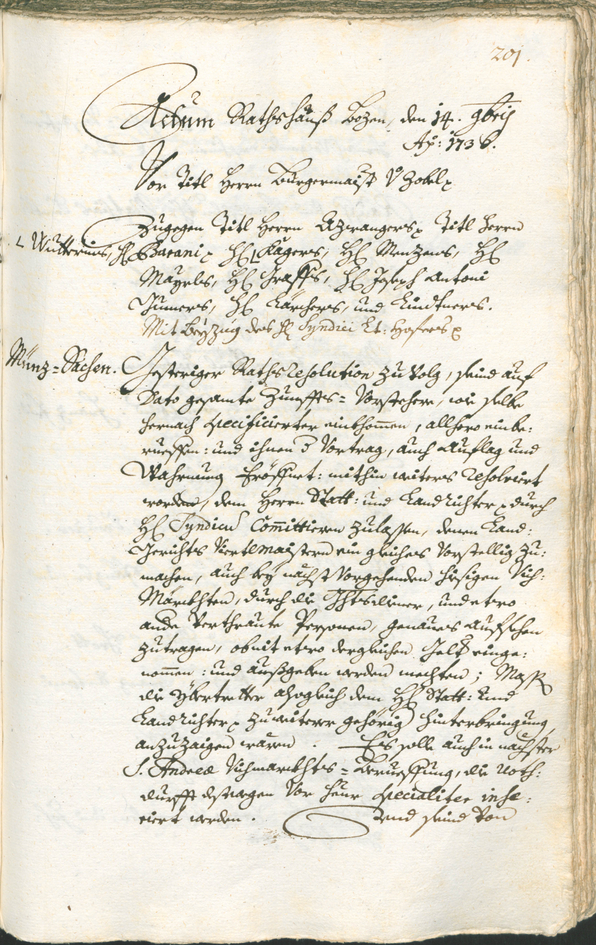 201.
Actum Rathshauß Bozen, den 14. 9bris
Ao: 1736.
Vor Titl Herrn Burgermaistr V Zobel
Zugegen Titl Herrn Azwangers, Titl Herrn
Hr Barani, Hr Kägers, Hr Menzens, Hr
Mayrls, Hr Graffs, Hr Joseph Antoni
Jnners, Hr Kärchers, und Lindtners.
Mit Beyzug des Hr Syndici Lt: Hofers
Münz-Sachen.
Gesteriger Raths Resolution zu Volg, seind auf
Dato gesamte Zunfft-Vorstehere, wie selbe
hernach specificierter einkhommen, allhero einbe-
rueffen: und ihnen der Vortrag, auch Auflag und
Wahrnung Eröffnet: mithin weiters resolviert
worden, dem Herrn Statt: und Landrichter durch
Hr Syndicu Committieren zulassen, denen Land-
Gerichts Viertlmaistern ein gleiches Vorstellig zu-
machen, auch bey nächst Vorgehenden hiesigen Vich-
Märckhten, durch die Ghtsdiener, und etwo
andere Verthraute Personen, genaues Aufsehen
zutragen, ob nit etwo dergleichen Gelt einge-
nommen: und außgeben werden mechten;
die Ybertretter alsogleich dem Hr Statt: und
Landrichter zu weiterer gehörig hinterbringung
anzuzaigen wären. Es solle auch in nächster
S. Andreæ Vichmarckhts-Berueffung, die Noth-
durfft destwegen Vor heur specialiter inse-
riert werden. Und seind Von